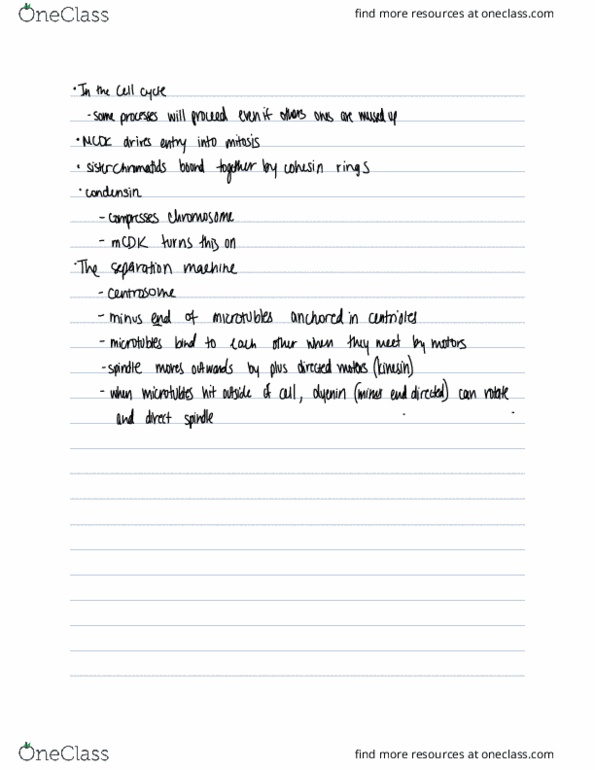 OneClass find more resources at oneclass.com
• In the cell cycle
- some processes will proceed even if others ones are messed up
• MCDK drives entry into mitosis
• sister chromatids bound together by cohesin rings
• condensin
- compresses chromosome
- mCDK turns this on
• The separation machine
- centrosome
- minus end of microtubles anchored in centrioles
- microtubles bind to each other when they meet by motors
- spindle moves outwards by plus directed motors (kinesin)
- when microtubles hit outside of cell, dyenin (minus end directed) can rotate
and direct spindle
OneClass find more resources at oneclass.com